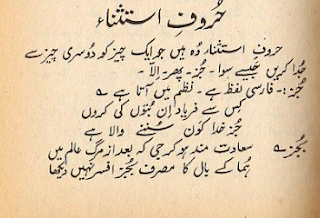 حُروفِ استثناء
حروفِ استثناء وُہ ہیں جو ایک چیز کو دُوسری چیز سے
جُدا کریں جیسے سوا۔ جُز۔ پھر۔ اِلّا۔
جُز:۔ فارسی لفظ ہے۔ نظم میں آتا ہے ؎
کس سے فریاد اِن بُتوں کی کروں
جُز خدا کون سُننے والا ہے
بجُز ؎ سعادت مند ہو کر جی کہ بعد از مرگ عالم میں
ہُما کے بال کا مصرف بجُز افسر نہیں دیکھا